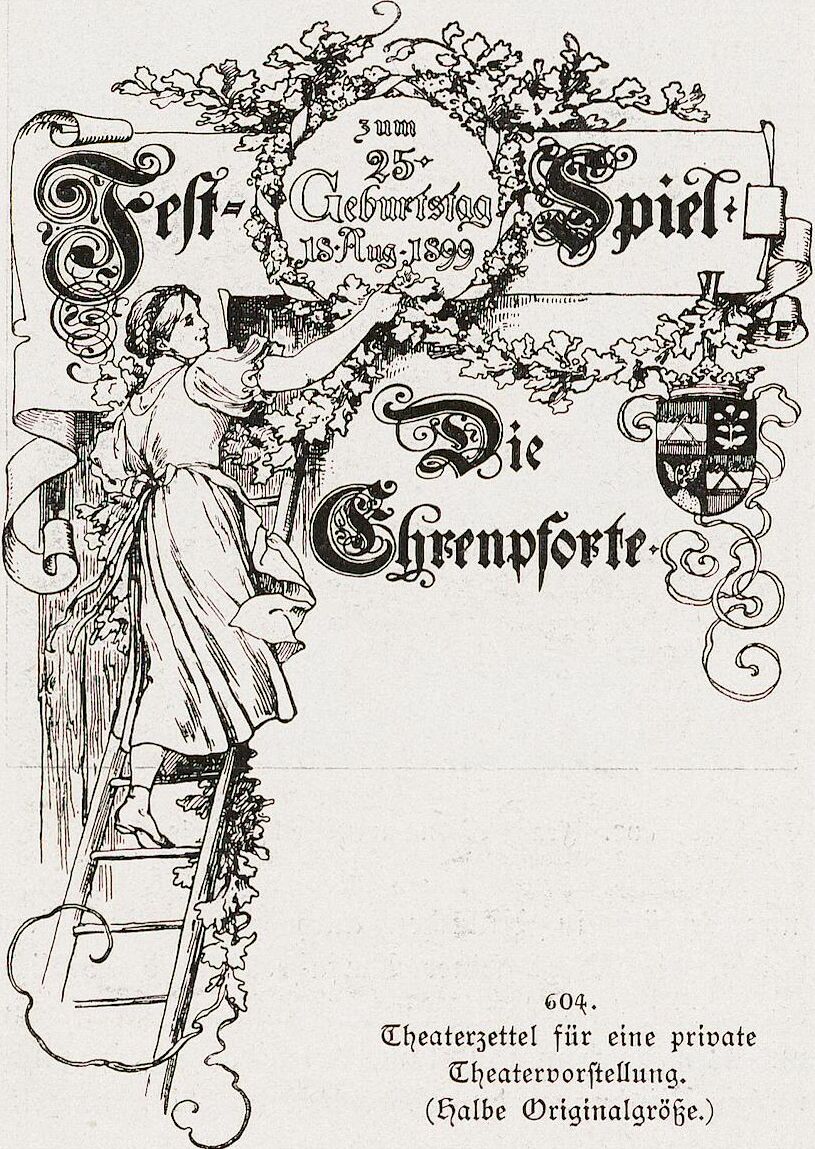 Fest-
zum
25.
Geburtstag
18. Aug. 1899
Spiel.
Die
Ehrenpforte.
604.
Theaterzettel für eine private
Theatervorstellung.
(Halbe Originalgröße.)